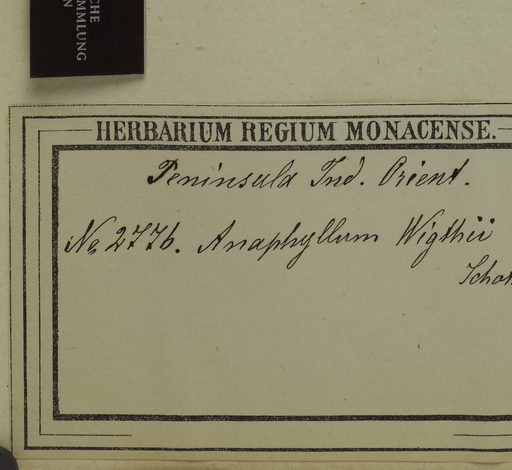 CHE
MMLUNG
N
HERBARIUM REGIUM MONACENSE.
Peninsula Ind. Orient.
No 2776. Anaphyllum Wigthii
Schot